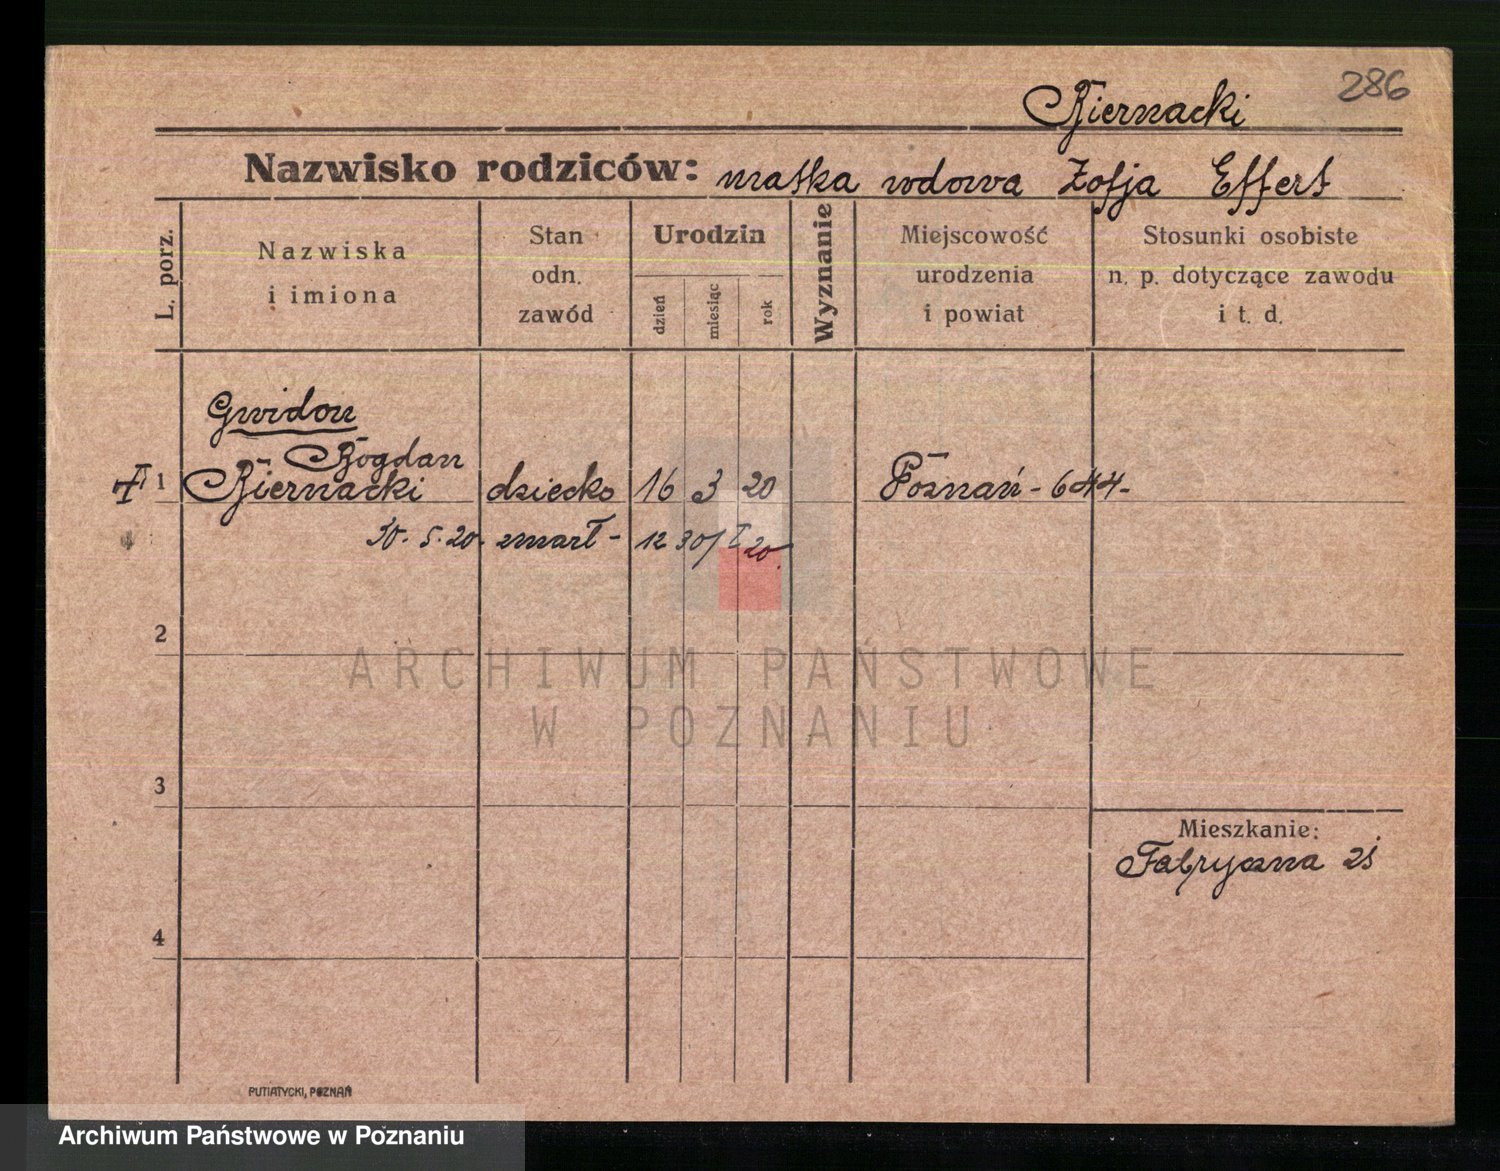 286
Biernacki
Nazwisko rodziców: matka wdowa Zofja Effert
L. porz.
Nazwiska
i imiona
Stan
odn.
zawód
Urodzin
dzień
miesiąc
rok
Wyznanie
Miejscowość
urodzenia
i powiat
Stosunki osobiste
n. p. dotyczące zawodu
i t. d.
Gwidon
Bogdan
1 Biernacki dziecko 16 3 20 Poznań - 644-
30. 5. 20. zmarł - 12 30/ 20.
2
ARCHIWUM PAŃSTWOWE
W POZNANIU
3
Mieszkanie:
Fabryczna
4
PUTIATYCKI, POZNAŃ
Archiwum Państwowe w Poznaniu